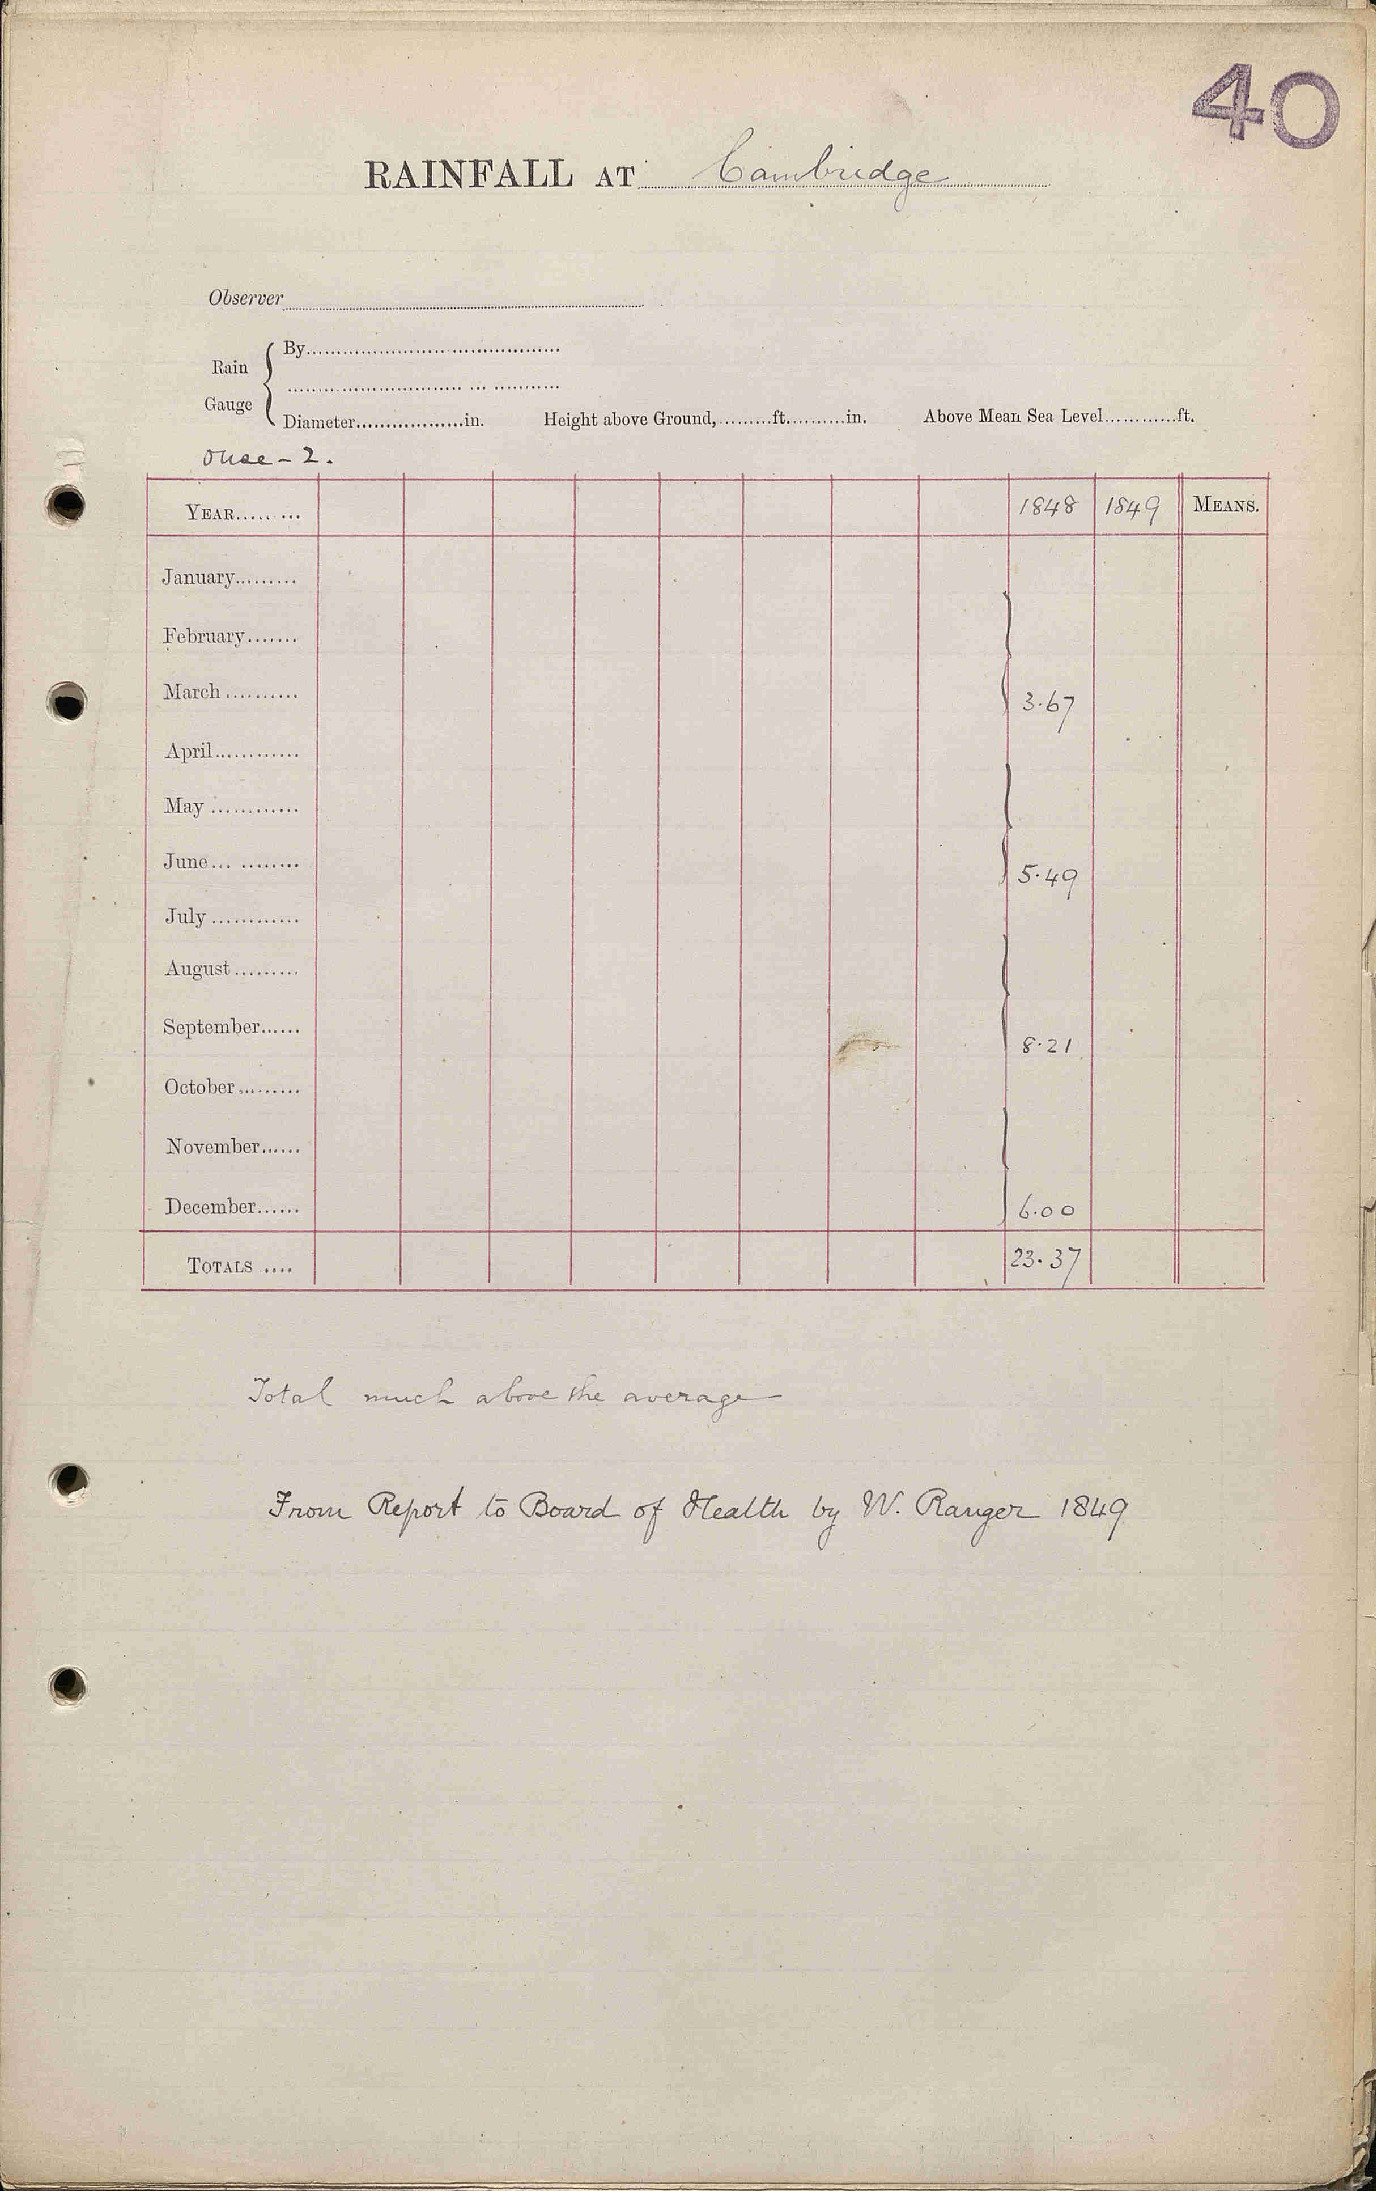 40
RAINFALL AT Cambridge
Observer
Rain Gauge
By
Diameter..................in. Height above Ground,.........ft..........in. Above Mean Sea Level............ft.
Ouse - 2.
YEAR......... 1848 1849 MEANS.
January.........
February.......
March.......... 3.67
April............
May............
June........... 5.49
July............
August.........
September...... 8.21
October.........
November......
December...... 6.00
TOTALS .... 23.37
Total much above the average
From Report to Board of Health by W. Ranger 1849